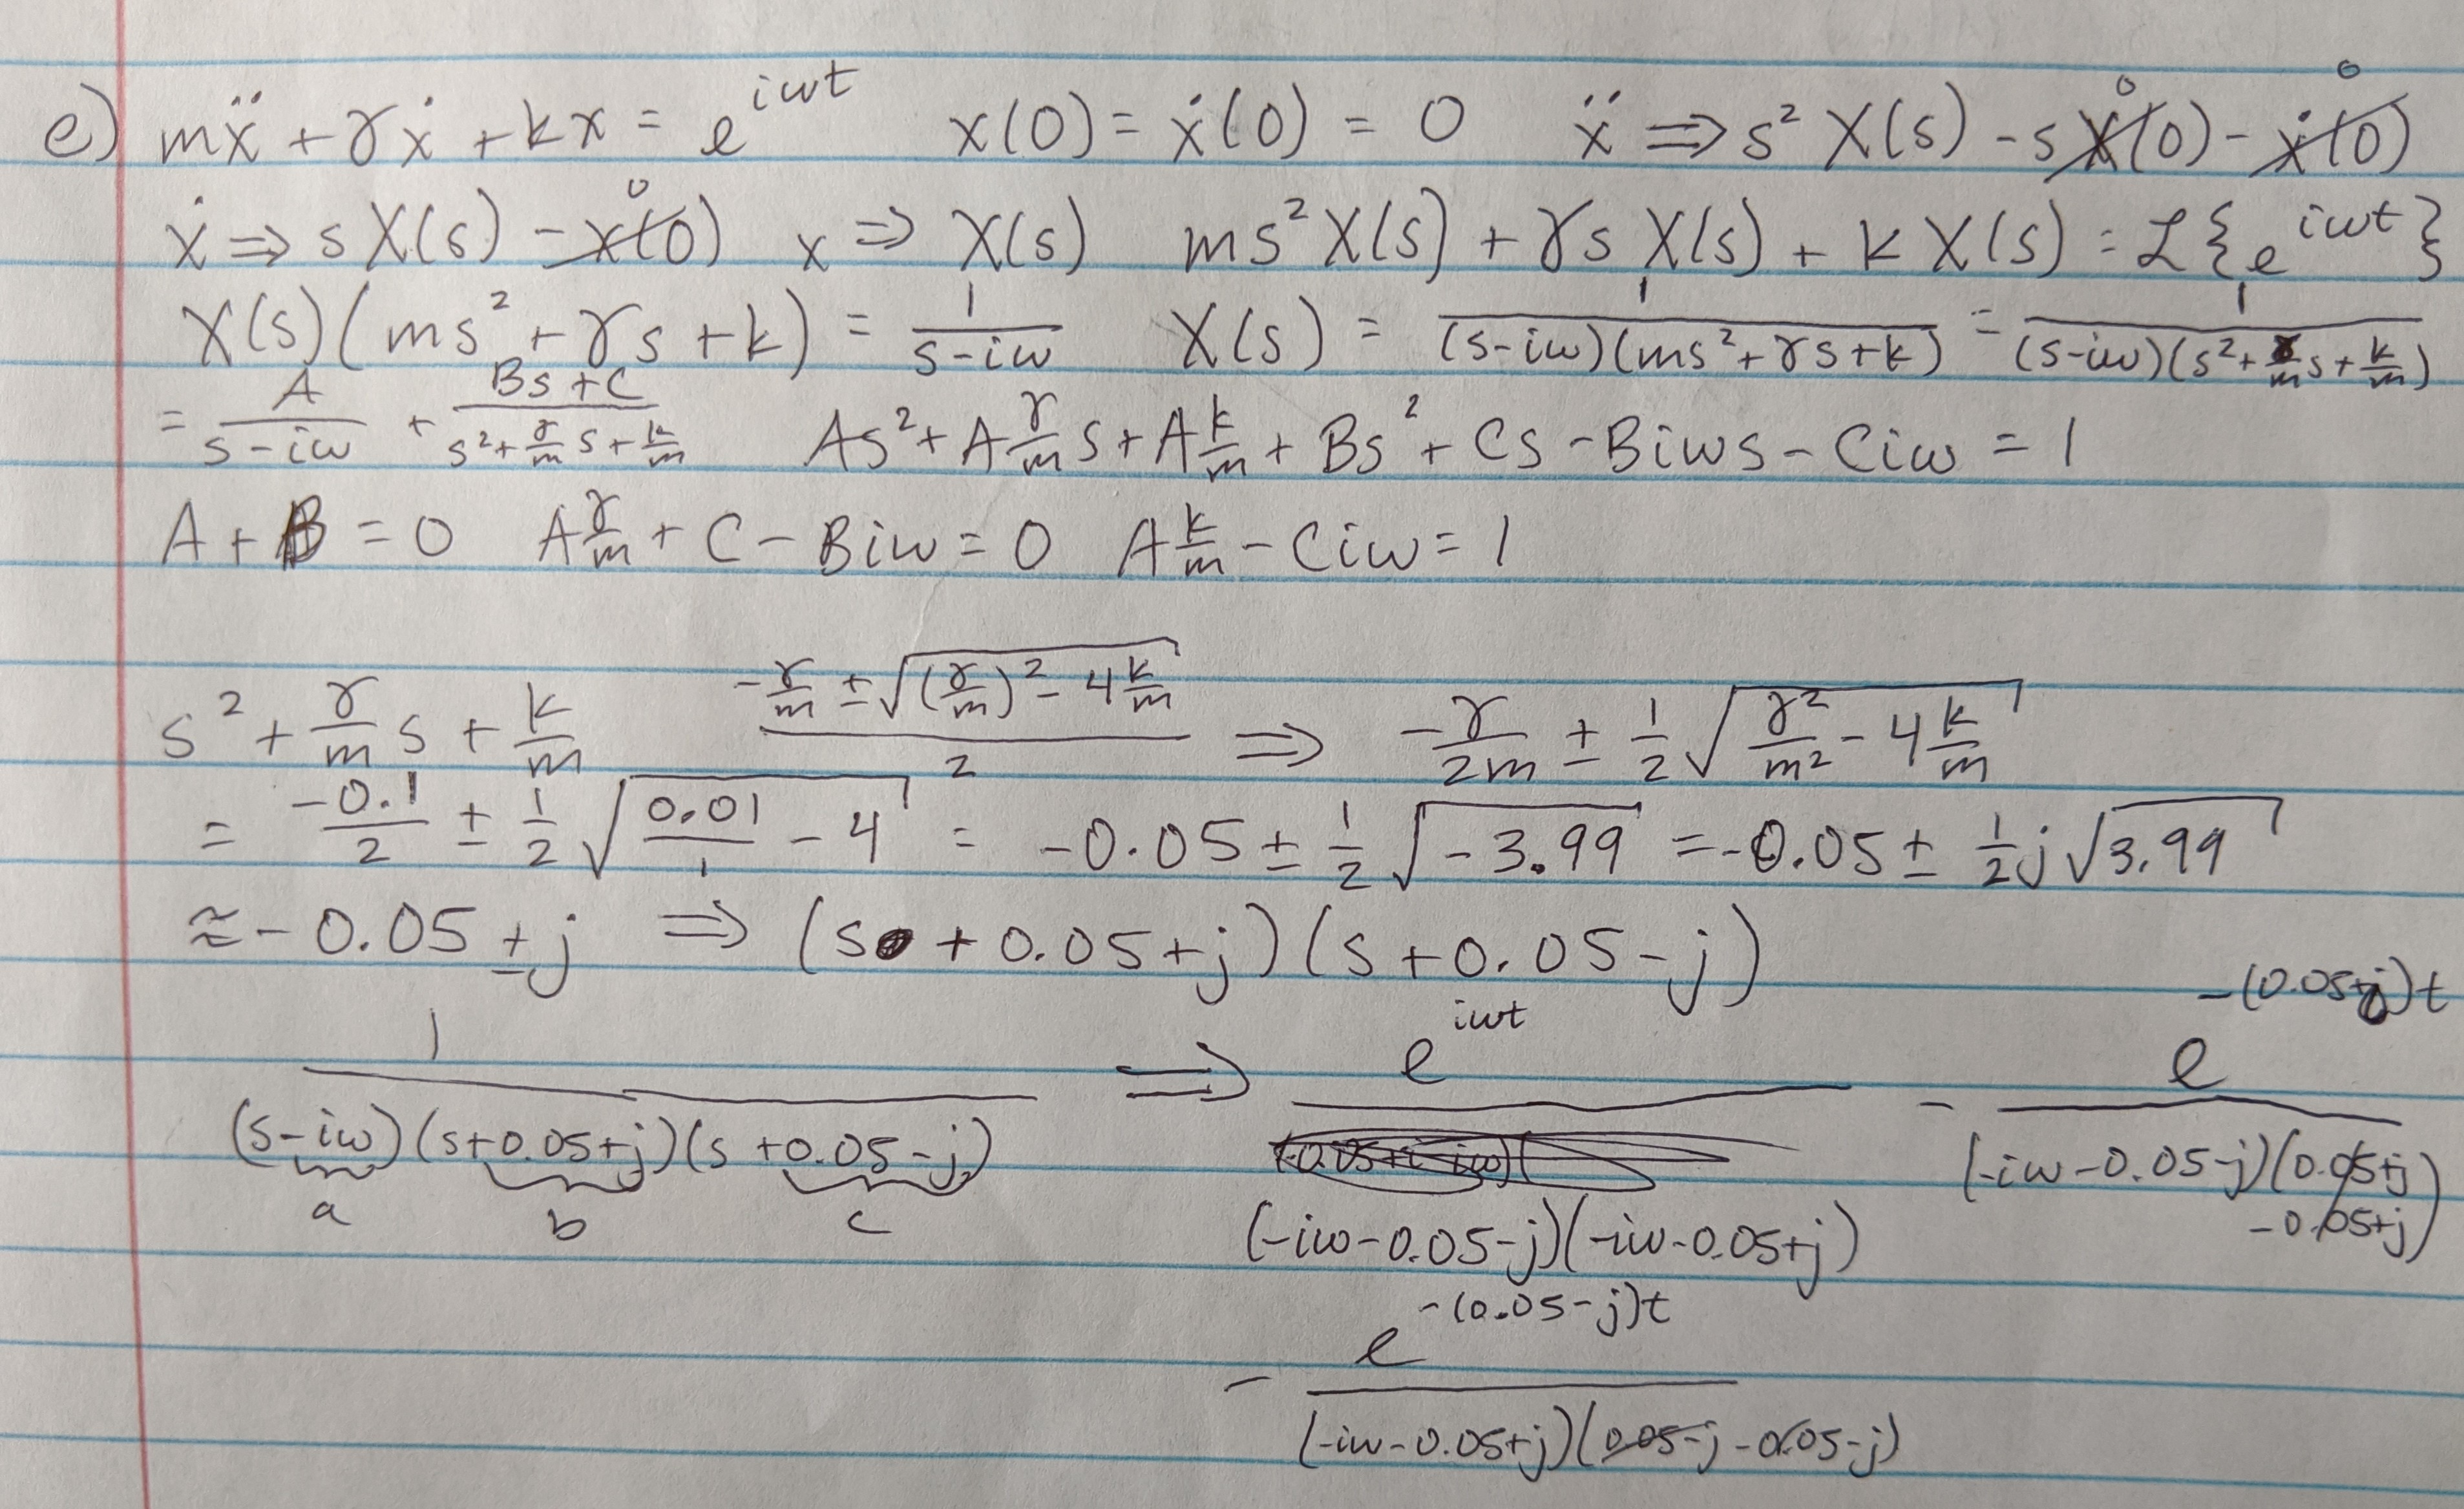 e) mẍ + γẋ + kx = e^{iωt}   x(0) = ẋ(0) = 0   ẍ ⇒ s² X(s) - s x(0)⁰ - ẋ(0)⁰
ẋ ⇒ s X(s) - x(0)⁰   x ⇒ X(s)   ms² X(s) + γs X(s) + k X(s) = ℒ{e^{iωt}}
X(s)(ms² + γs + k) = 1/(s-iω)   X(s) = 1/((s-iω)(ms²+γs+k)) = 1/((s-iω)(s²+γ/m s+k/m))
= A/(s-iω) + (Bs+C)/(s²+γ/m s+k/m)   As² + A γ/m s + A k/m + Bs² + Cs - Biωs - Ciω = 1
A + B = 0   A γ/m + C - Biω = 0   A k/m - Ciω = 1
s² + γ/m s + k/m   (-γ/m ± √((γ/m)² - 4 k/m))/2 ⇒ -γ/2m ± 1/2 √(γ²/m² - 4 k/m)
= -0.1/2 ± 1/2 √(0.01/1 - 4) = -0.05 ± 1/2 √(-3.99) = -0.05 ± 1/2 j√(3.99)
≈ -0.05 ± j ⇒ (s + 0.05+j)(s+0.05-j)
1/((s-iω)(s+0.05+j)(s+0.05-j)) ⇒ e^{iωt}/((-iω-0.05-j)(-iω-0.05+j)) - e^{-(0.05+j)t}/((-iω-0.05-j)(0.05+j-0.05+j))
a b c
- e^{-(0.05-j)t}/((-iω-0.05+j)(0.05-j-0.05-j))